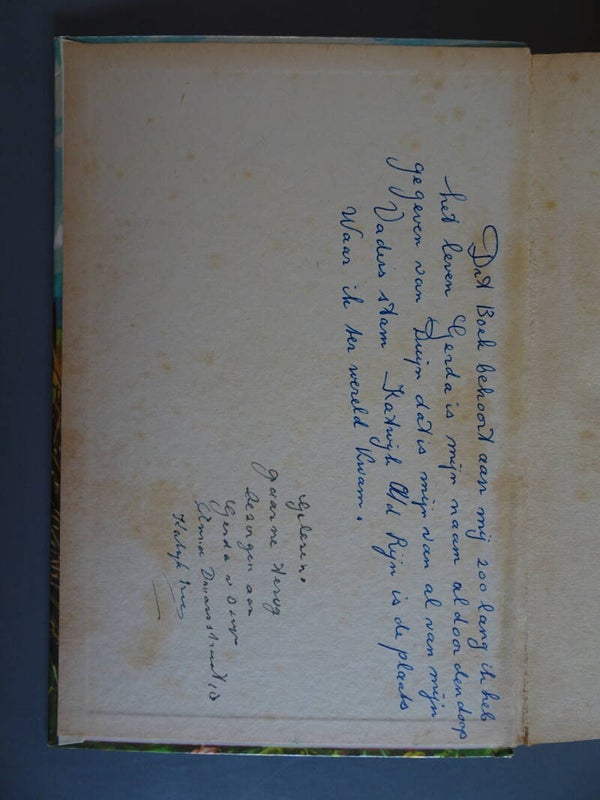 Dit Boek behoort aan mij zoo lang ik heb
het leven Gerda is mijn naam al door den doop
gegeven van Duijn dat is mijn van al van mijn
Vaders stam Katwijk a/d Rijn is de plaats
Waar ik ter wereld kwam.
Gelezen.
gaarne terug
bezorgen aan
Gerda v Duijn
Katwijk